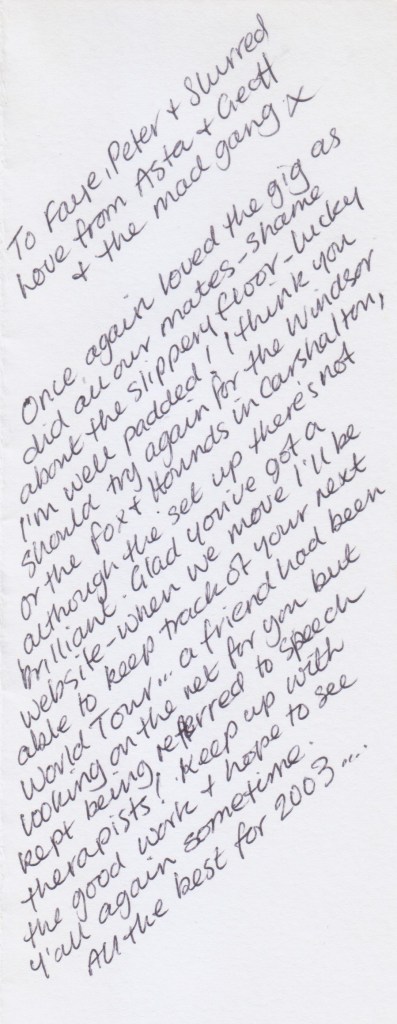 To Faye, Peter + Slurred
Love from Asta + Geoff
+ the mad gang x
Once again loved the gig as
did all our mates - shame
about the slippery floor - lucky
I'm well padded! I think you
should try again for the Windsor
or the Fox + Hounds in Carshalton,
although the set up there's not
brilliant. Glad you've got a
website - when we move I'll be
able to keep track of your next
World Tour... a friend had been
looking on the net for you but
kept being referred to speech
therapists! Keep up with
the good work + hope to see
y'all again sometime.
All the best for 2003....